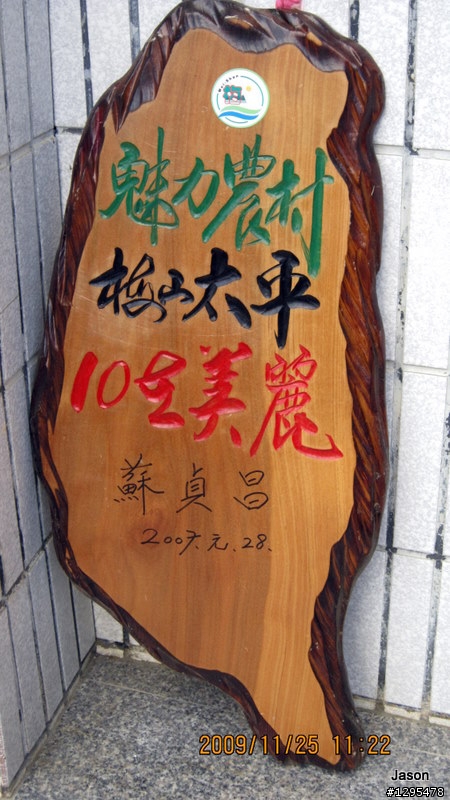 魅力農村
梅山太平
10在美麗
蘇貞昌
2007.元.28.
2009/11/25 11:22
Jason
#1295478